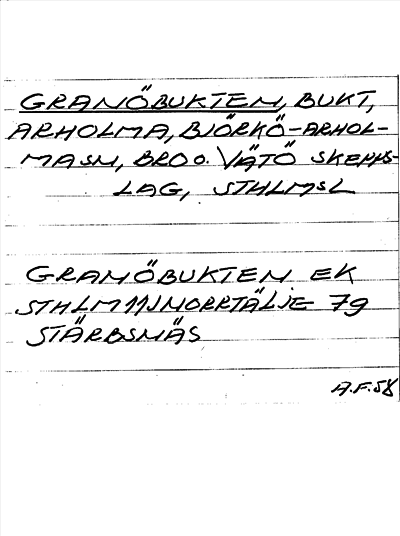 GRANÖBUKTEN, BUKT,
ARHOLMA, BJÖRKÖ-ARHOL-
MASN, BRO o. VÄTÖ SKEPPS-
LAG, STHLMSL
GRANÖBUKTEN EK
STHLM 11J NORRTÄLJE 7g
STÄRBSNÄS
A.F. 58